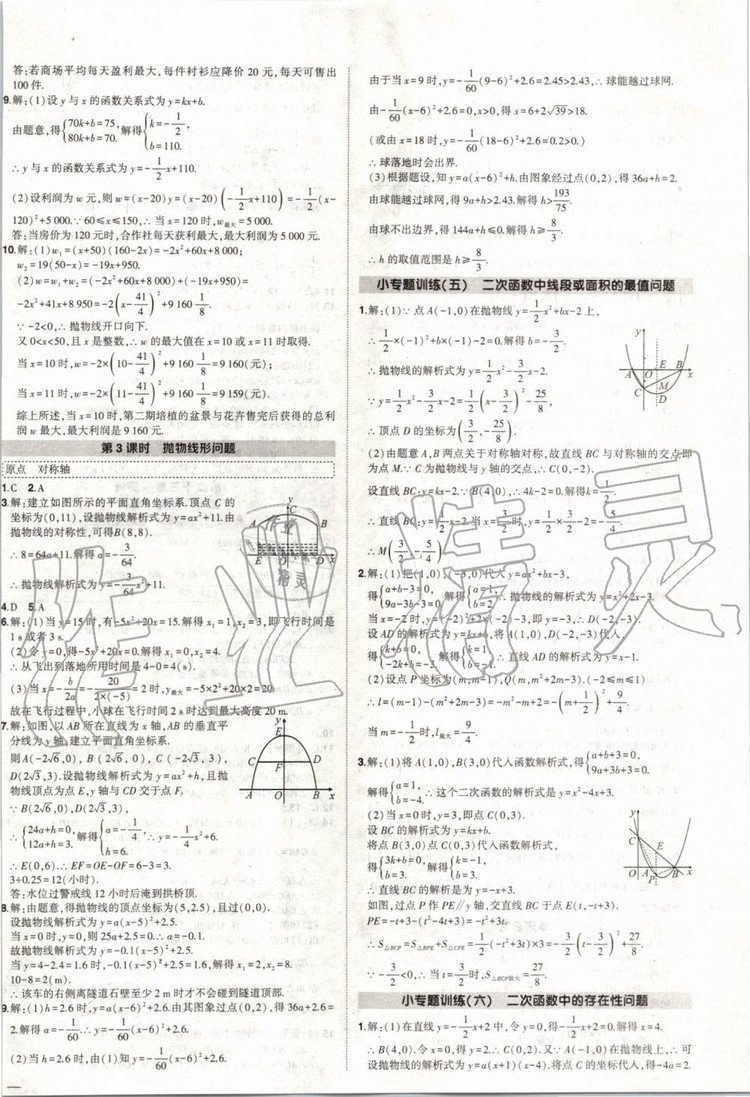 答:若商场平均每天盈利最大,每件衬衫应降价 20 元,每天可售出
100 件.
9.解:(1)设 y 与 x 的函数关系式为 y=kx+b.
由题意,得{70k+b=75, 80k+b=70. 解得{k=-1/2, b=110.
∴ y 与 x 的函数关系式为 y=-1/2x+110.
(2)设利润为 w 元,则 w=(x-20)y=(x-20)(-1/2x+110)=-1/2(x-
120)²+5 000.∵ 60≤x≤150,∴ 当 x=120 时,w最大=5 000.
答:当房价为 120 元时,合作社每天获利最大,最大利润为 5 000 元.
10.解:(1)w₁=(x+50)(160-2x)=-2x²+60x+8 000;
w₂=19(50-x)=-19x+950.
(2)w=w₁+w₂=(-2x²+60x+8 000)+(-19x+950)=
-2x²+41x+8 950=-2(x-41/4)²+9 160 1/8.
∵ -2<0,∴ 抛物线开口向下.
又 0<x<50,且 x 是整数,∴ w 的最大值在 x=10 或 x=11 时取得.
当 x=10 时,w=-2×(10-41/4)²+9 160 1/8=9 160(元);
当 x=11 时,w=-2×(11-41/4)²+9 160 1/8=9 159(元).
综上所述,当 x=10 时,第二期培植的盆景与花卉售完后获得的总利
润 w 最大,最大总利润是 9 160 元.
第 3 课时 抛物线形问题
原点 对称轴
1.C 2.A
3.解:建立如图所示的平面直角坐标系.顶点 C 的
坐标为(0,11),设抛物线解析式为 y=ax²+11.由
抛物线的对称性,可得 B(8,8).
∴ 8=64a+11.解得 a=-3/64.
∴ 抛物线解析式为 y=-3/64x²+11.
y C A B E O D x
4.D 5.A
6.解:(1)当 y=15 时,有-5x²+20x=15.解得 x₁=1,x₂=3,即飞行时间是
1 s 或者 3 s.
(2)令 y=0,得-5x²+20x=0.解得 x₁=0,x₂=4.
∴ 从飞出到落地所用时间是 4-0=4(s).
(3)当 x=-b/2a=-20/2×(-5)=2 时,y最大=-5×2²+20×2=20.
故在飞行过程中,小球在飞行时间 2 s 时达到最大高度 20 m.
7.解:如图,以 AB 所在直线为 x 轴,AB 的垂直平
分线为 y 轴,建立平面直角坐标系.
则 A(-2√6,0),B(2√6,0),C(-2√3,3),
D(2√3,3).设抛物线解析式为 y=ax²+h,且抛
物线顶点为点 E,y 轴与 CD 交于点 F.
∵ B(2√6,0),D(2√3,3),
∴ {24a+h=0, 12a+h=3. 解得{a=-1/4, h=6. ∴ y=-1/4x²+6.
∴ E(0,6).∴ EF=OE-OF=6-3=3.
3÷0.25=12(小时).
答:水位过警戒线 12 小时后淹到拱桥顶.
y E C D A O B x
8.解:由题意,得抛物线的顶点坐标为(5,2.5),且过(0,0).
设抛物线解析式为 y=a(x-5)²+2.5.
当 x=0 时,y=0,则 25a+2.5=0.∴ a=-0.1.
故抛物线解析式为 y=-0.1(x-5)²+2.5.
当 y=4-2.4=1.6 时,-0.1(x-5)²+2.5=1.6.解得 x₁=2,x₂=8.
10-8=2(m).
∴ 该车的右侧离隧道石壁至少 2 m 时才不会碰到隧道顶部.
9.解:(1)当 h=2.6 时,y=a(x-6)²+2.6.由其图象过点(0,2),得 36a+2.6
=2.解得 a=-1/60.∴ y=-1/60(x-6)²+2.6.
(2)当 h=2.6 时,由(1)知 y=-1/60(x-6)²+2.6.
由于当 x=9 时,y=-1/60(9-6)²+2.6=2.45>2.43,∴ 球能越过球网.
由-1/60(x-6)²+2.6=0,x>0,得 x=6+2√39>18.
(或由 x=18 时,y=-1/60(18-6)²+2.6=0.2>0.)
∴ 球落地时会出界.
(3)根据题设,知 y=a(x-6)²+h.由图象经过点(0,2),得 36a+h=2.
由球能越过球网,得 9a+h>2.43.解得 h>193/75.
由球不出边界,得 144a+h≤0.解得 h≥8/3.
∴ h 的取值范围是 h≥8/3.
小专题训练(五) 二次函数中线段或面积的最值问题
1.解:(1)∵ 点 A(-1,0)在抛物线 y=1/2x²+bx-2 上,
∴ 1/2×(-1)²+b×(-1)-2=0.解得 b=-3/2.
∴ 抛物线的解析式为 y=1/2x²-3/2x-2.
∵ y=1/2x²-3/2x-2=1/2(x-3/2)²-25/8,
∴ 顶点 D 的坐标为(3/2,-25/8).
y A O B x C M D
(2)由题意易知,点 A,B 关于对称轴对称,故直线 BC 与对称轴的交点即
为点 M.∵ C 为抛物线与 y 轴的交点,∴ C(0,-2).
设直线 BC:y=kx-2.∵ B(4,0),∴ 4k-2=0.解得 k=1/2.
∴ 直线 BC:y=1/2x-2.当 x=3/2 时,y=1/2×3/2-2=-5/4.
∴ M(3/2,-5/4).
2.解:(1)把(1,0),(-3,0)代入 y=ax²+bx-3,
得{a+b-3=0, 9a-3b-3=0. 解得{a=1, b=2. ∴ 抛物线的解析式为 y=x²+2x-3.
当 x=-2 时,y=(-2)²+2×(-2)-3,即 y=-3.∴ D(-2,-3).
设 AD 的解析式为 y=kx+h,将 A(1,0),D(-2,-3)代入,
得{k+h=0, -2k+h=-3. 解得{k=1, h=-1. ∴ 直线 AD 的解析式为 y=x-1.
(2)设点 P 坐标为(m,m-1),Q(m,m²+2m-3).(-2≤m≤1)
∴ l=(m-1)-(m²+2m-3)=-m²-m+2=-(m+1/2)²+9/4.
当 m=-1/2时,l最大=9/4.
3.解:(1)将 A(1,0),B(3,0)代入函数解析式,得{a+b+3=0, 9a+3b+3=0.
解得{a=1, b=-4. ∴ 这个二次函数的解析式是 y=x²-4x+3.
(2)当 x=0 时,y=3,即点 C(0,3).
设 BC 的解析式为 y=kx+b.
将点 B(3,0)点 C(0,3)代入函数解析式,
得{3k+b=0, b=3. 解得{k=-1, b=3.
∴ 直线 BC 的解析是为 y=-x+3.
过点 P 作 PE∥y 轴,交直线 BC 于点 E(t,-t+3).
PE=-t+3-(t²-4t+3)=-t²+3t.
∴ S△BCP=S△BPE+S△CPE=1/2(-t²+3t)×3=-3/2(t-3/2)²+27/8.
∵ -3/2<0,∴ 当 t=3/2时,S△BCP最大=27/8.
小专题训练(六) 二次函数中的存在性问题
1.解:(1)在直线 y=-1/2x+2 中,令 y=0,得-1/2x+2=0.解得 x=4.
∴ B(4,0).令 x=0,得 y=2.∴ C(0,2).又∵ A(-1,0)在抛物线上,∴ 可
设抛物线的解析式为 y=a(x+1)(x-4).将点 C 的坐标代入,得-4a=2.